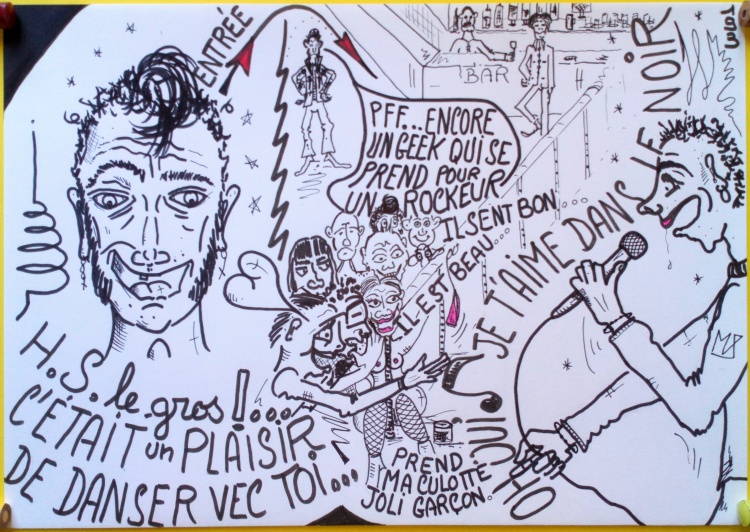 ENTRÉE
BAR
PFF...ENCORE
UN GEEK QUI SE
PREND POUR
UN ROCKEUR
IL SENT BON...
IL EST BEAU...
OH OUI JE T'AIME DANS LE NOIR
H.S. le gros !...
C'ÉTAIT un PLAISIR
DE DANSER VEC TOI...
PREND
MA CULOTTE
JOLI GARÇON.